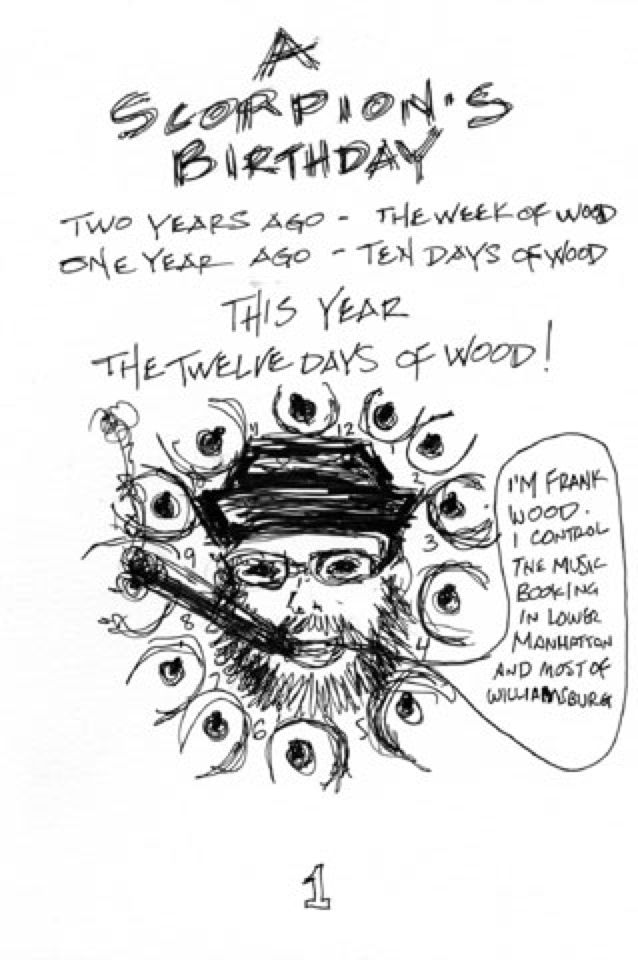 A
SCORPION'S
BIRTHDAY
TWO YEARS AGO - THE WEEK OF WOOD
ONE YEAR AGO - TEN DAYS OF WOOD
THIS YEAR
THE TWELVE DAYS OF WOOD!
11
12
1
2
3
4
5
6
7
8
9
I'M FRANK
WOOD.
I CONTROL
THE MUSIC
BOOKING
IN LOWER
MANHATTAN
AND MOST OF
WILLIAMSBURG
1